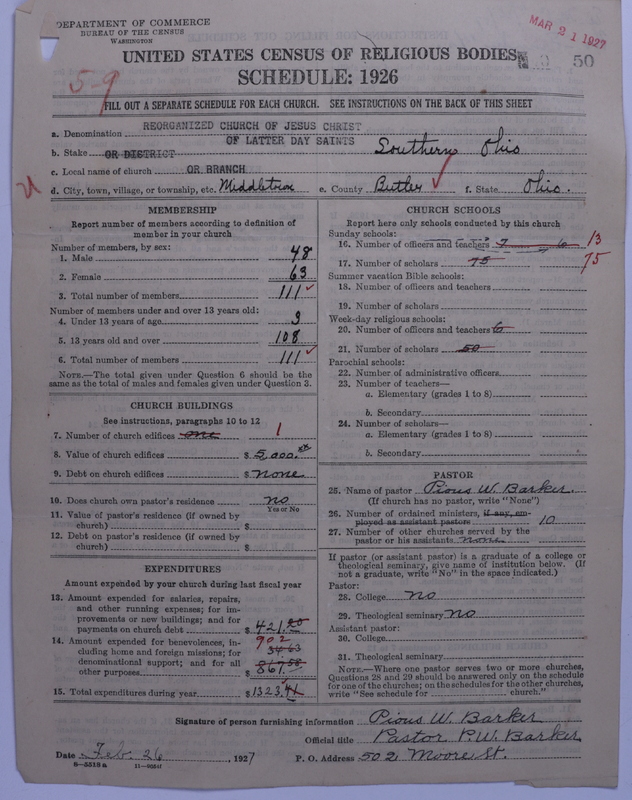 DEPARTMENT OF COMMERCE
BUREAU OF THE CENSUS
WASHINGTON
MAR 21 1927
50
UNITED STATES CENSUS OF RELIGIOUS BODIES
SCHEDULE: 1926
5-9
FILL OUT A SEPARATE SCHEDULE FOR EACH CHURCH. SEE INSTRUCTIONS ON THE BACK OF THIS SHEET
a. Denomination REORGANIZED CHURCH OF JESUS CHRIST
OF LATTER DAY SAINTS
b. Stake OR DISTRICT Southern Ohio
c. Local name of church OR BRANCH
d. City, town, village, or township, etc. Middletown e. County Butler f. State Ohio.
MEMBERSHIP
Report number of members according to definition of
member in your church
Number of members, by sex:
1. Male 48
2. Female 63
3. Total number of members 111
Number of members under and over 13 years old:
4. Under 13 years of age 3
5. 13 years old and over 108
6. Total number of members 111
NOTE.—The total given under Question 6 should be
same as the total of males and females given under Question 3.
CHURCH BUILDINGS
See instructions, paragraphs 10 to 12
7. Number of church edifices one 1
8. Value of church edifices $ 5,000.
9. Debt on church edifices $ none
10. Does church own pastor's residence no
Yes or No
11. Value of pastor's residence (if owned by
church) $
12. Debt on pastor's residence (if owned by
church) $
EXPENDITURES
Amount expended by your church during last fiscal year
13. Amount expended for salaries, repairs,
and other running expenses; for im-
provements or new buildings; and for
payments on church debt $ 421.
14. Amount expended for benevolences, in-
cluding home and foreign missions; for
denominational support; and for all
other purposes $
902
15. Total expenditures during year $ 1323.
CHURCH SCHOOLS
Report here only schools conducted by this church
Sunday schools:
16. Number of officers and teachers 7 6 13
17. Number of scholars 75 75
Summer vacation Bible schools:
18. Number of officers and teachers
19. Number of scholars
Week-day religious schools:
20. Number of officers and teachers 6
21. Number of scholars 50
Parochial schools:
22. Number of administrative officers
23. Number of teachers—
a. Elementary (grades 1 to 8)
b. Secondary
24. Number of scholars—
a. Elementary (grades 1 to 8)
b. Secondary
PASTOR
25. Name of pastor Pious W. Barker
(If church has no pastor, write "None")
26. Number of ordained ministers, if any, em-
ployed as assistant pastors 10
27. Number of other churches served by the
pastor or his assistants none
If pastor (or assistant pastor) is a graduate of a college or
theological seminary, give name of institution below. (If
not a graduate, write "No" in the space indicated.)
Pastor:
28. College no
29. Theological seminary no
Assistant pastor:
30. College
31. Theological seminary
NOTE.—Where one pastor serves two or more churches,
Questions 28 and 29 should be answered only on the schedule
for one of the churches; on the schedules for the other churches,
write "See schedule for church."
Signature of person furnishing information Pious W. Barker
Official title Pastor P.W. Barker
Date Feb. 26, 1927 P. O. Address 502 Moore St.
8—5518 a